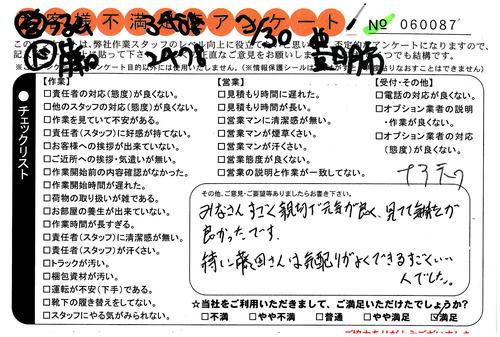 お客様不満足アンケート
No 060087
3/30
【作業】
□責任者の対応(態度)が良くない。
□他のスタッフの対応(態度)が良くない。
□作業を見ていて不安がある。
□責任者(スタッフ)に好感が持てない。
□お客様への挨拶が出来ていない。
□ご近所への挨拶・気遣いが無い。
□作業開始前の内容確認がなかった。
□作業開始時間が遅れた。
□荷物の取り扱いが雑である。
□お部屋の養生が出来ていない。
□作業時間が長すぎる。
□責任者(スタッフ)に清潔感が無い。
□責任者(スタッフ)が汗くさい。
□トラックが汚い。
□梱包資材が汚い。
□運転が不安(下手)である。
□靴下の履き替えをしてない。
□スタッフにやる気がみられない。
【営業】
□見積もり時間に遅れた。
□見積もり時間が長い。
□営業マンに清潔感が無い。
□営業マンが煙草くさい。
□営業マンが汗くさい。
□営業態度が良くない。
□営業の説明と作業が一致してない。
【受付・その他】
□電話の対応が良くない。
□オプション業者の説明
・作業が良くない。
□オプション業者の対応
(態度)が良くない。
チェックリスト
その他、ご意見・ご要望等ありましたらお書き下さい。
みなさんすごく親切で元気が良く、見てて気持が
良かったです。
特に藤田さんは気配りがよくできるすごくいい
人でした。
☆当社をご利用いただきまして、ご満足いただけたでしょうか?
□不満 □やや不満 □普通 □やや満足 ☑満足
ご協力ありがとうございました